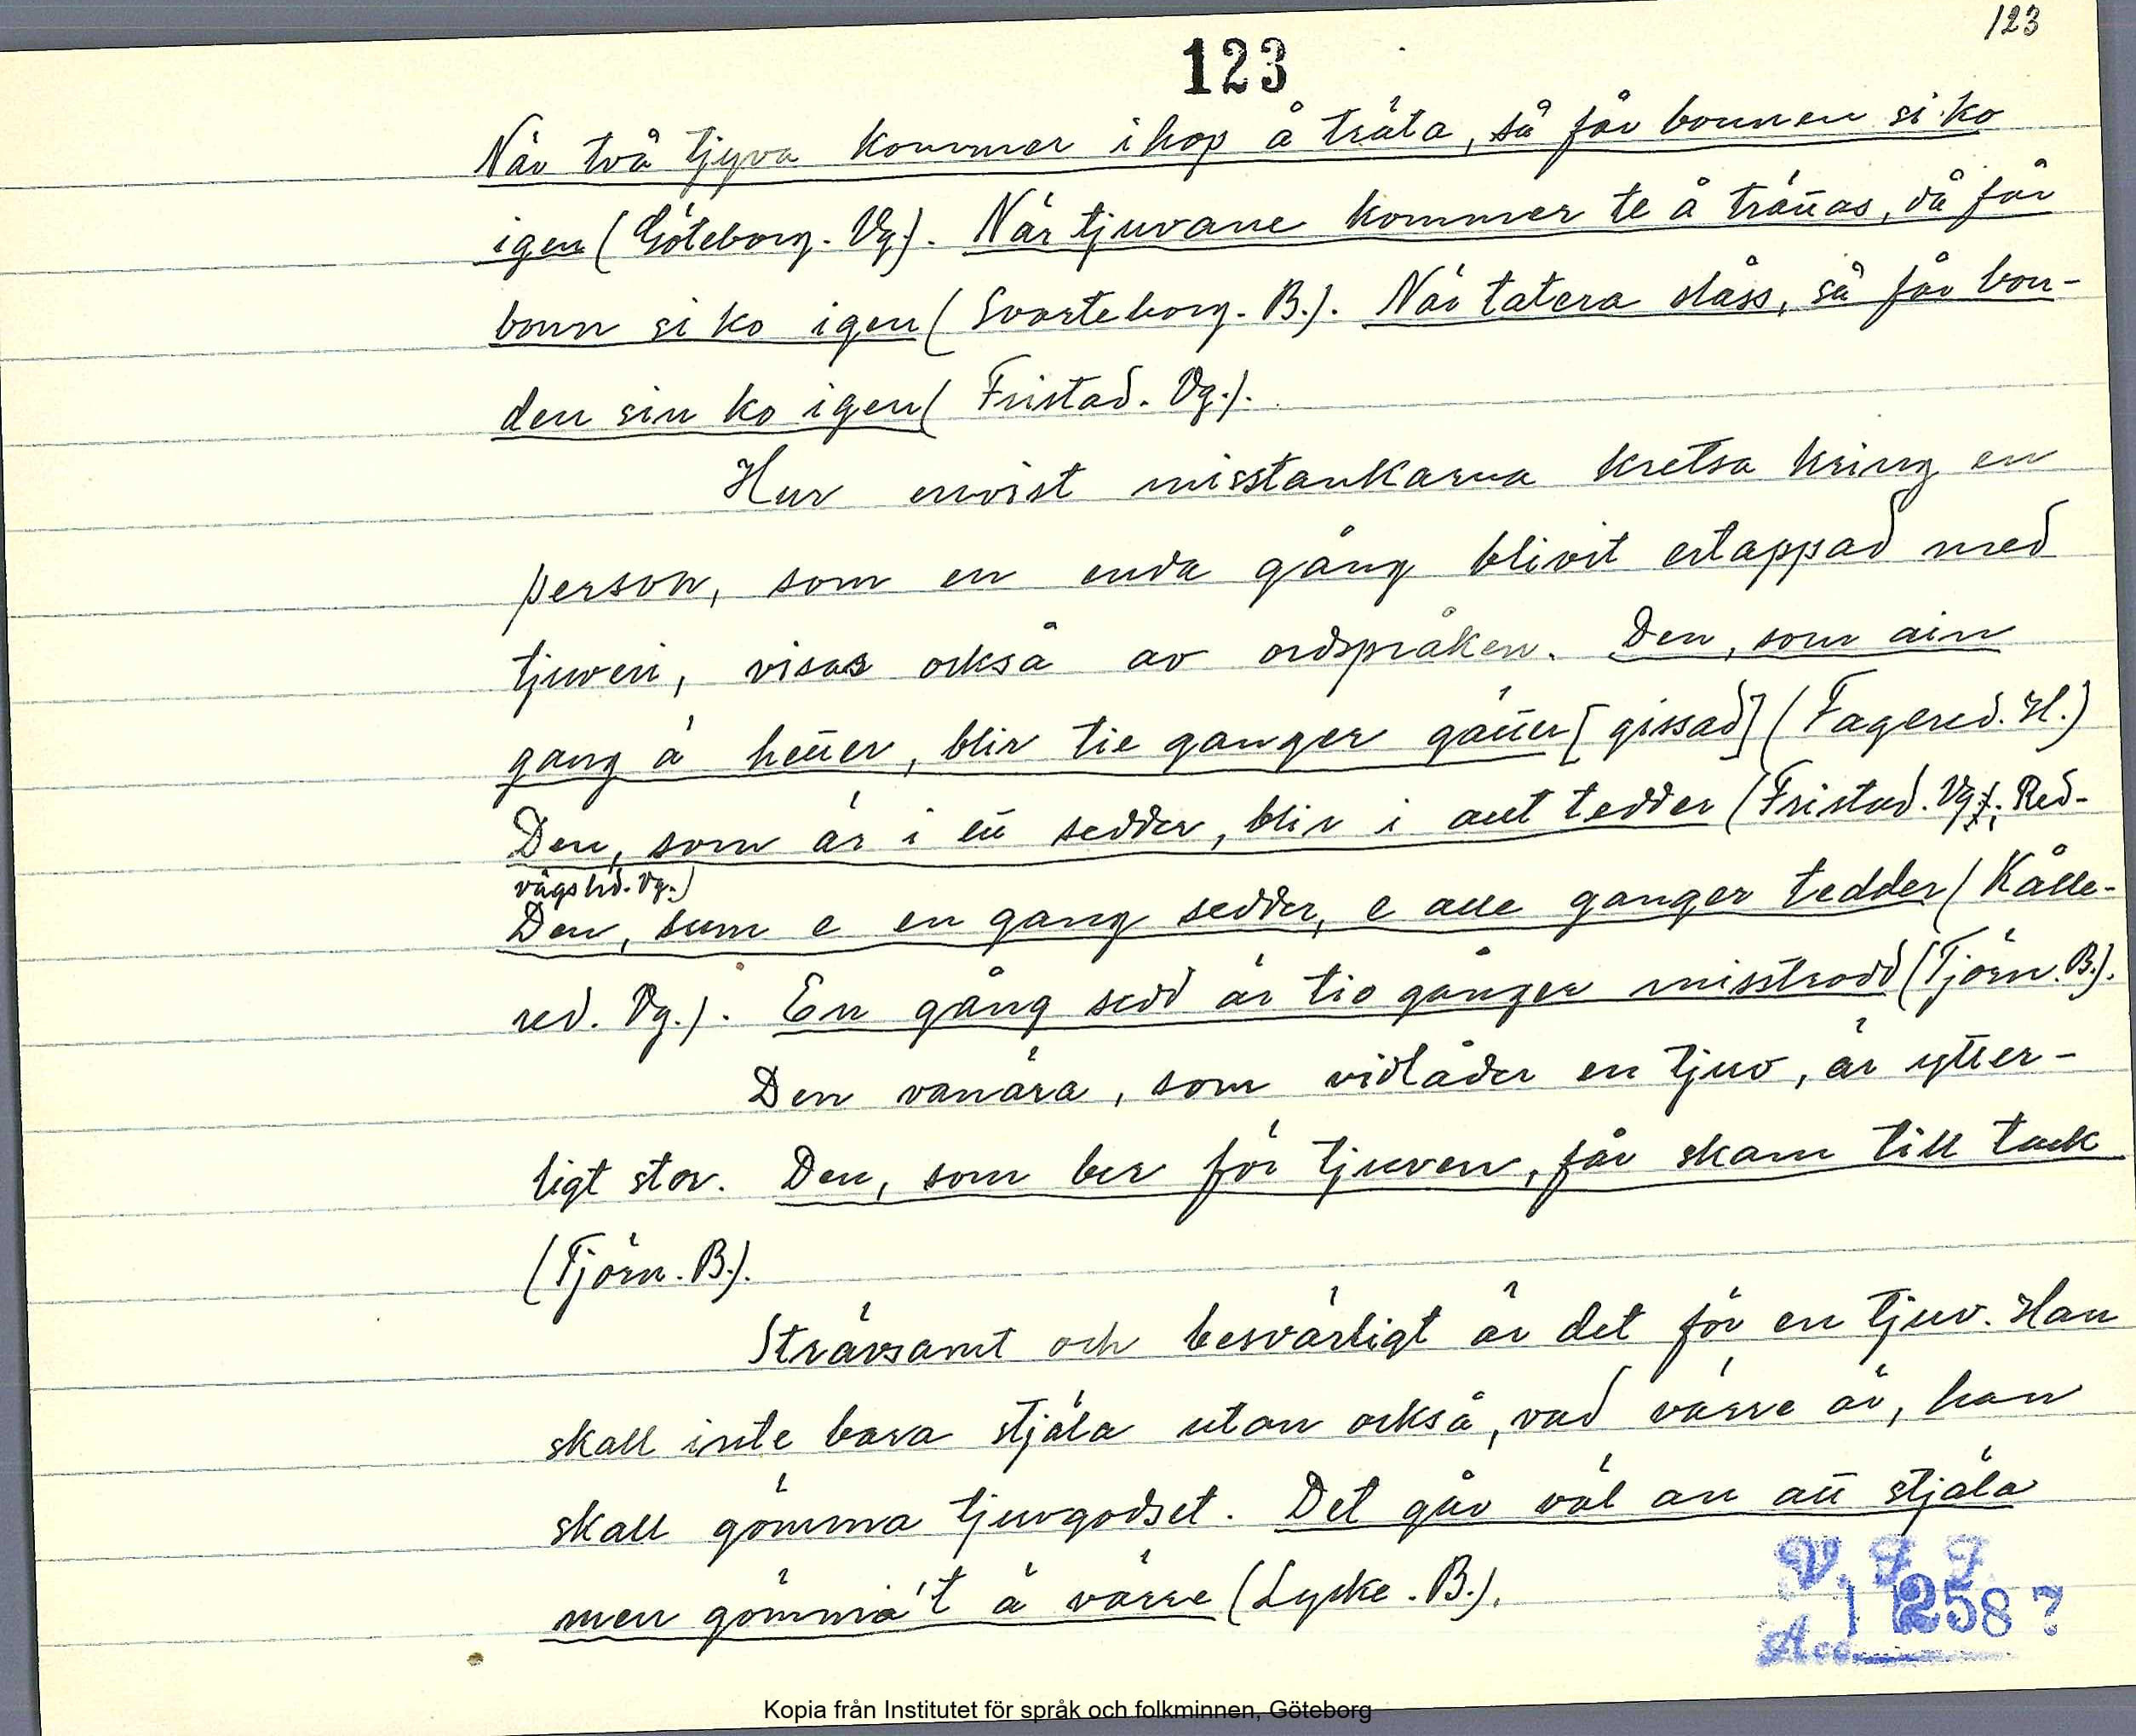 123
123
När två tjyva kommer ihop å träta, så får bonnen si ko
igen (Göteborg. Vg.). När tjuvane kommer te å trättas, då får
bonn si ko igen (Svarteborg. B.). När tatera slåss, så får bon-
den sin ko igen (Fristad. Vg.).
Hur envist misstankarna kretsa kring en
person, som en enda gång blivit ertappad med
tjuveri, visas också av ordspråken. Den, som ain
gang ä hetter, blir tie ganger gätter [gissad] (Fagered. H.)
Den, som är i ett sedder, blir i allt tedder (Fristad. Vg.; Red-
vägs hd. Vg.)
Den, sum e en gang sedder, e alle ganger tedder (Kålle-
red. Vg.). En gång sedd är tio gånger misstrodd (Tjörn. B.).
Den vanära, som vidlåder en tjuv, är ytter-
ligt stor. Den, som ber för tjuven, får skam till tack
(Tjörn. B.).
Strävsamt och besvärligt är det för en tjuv. Han
skall inte bara stjäla utan också, vad värre är, han
skall gömma tjuvgodset. Det går väl an att stjäla
men gömmä't ä värre (Lycke. B.).
V. F. F.
1258?
Acc.
Kopia från Institutet för språk och folkminnen, Göteborg